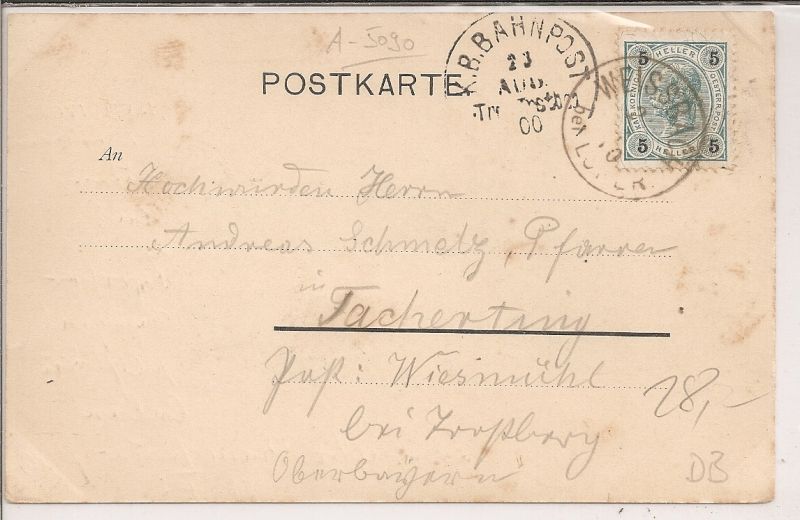 A-5090
K.B.BAHNPOST
23
AUG.
00
5 HELLER 5
KAIS. KOENIGL. OESTERR. POST
5 HELLER 5
WEISSBACH
bei LOFER.
POSTKARTE
An
Hochwürden Herrn
Andreas Schmelz, Pfarrer
in
Tacherting
Post: Wiesmühl
bei Troßberg
Oberbayern
28,-
DB